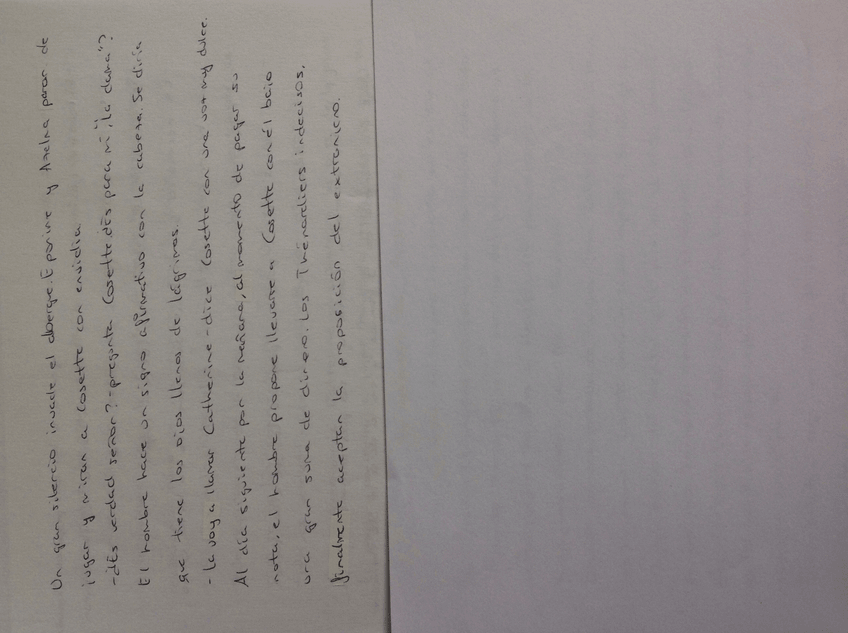 Un gran silencio invade el alberge. Éponine y Azelma paran de
jugar y miran a Cosette con envidia.
-¿És verdad señor? -pregunta Cosette ¿És para mí, "la dama"?
El hombre hace un signo afirmativo con la cabeza. Se diría
que tiene los ojos llenos de lágrimas.
- La voy a llamar Catherine - dice Cosette con una voz muy dulce.
Al día siguiente por la mañana, al momento de pagar su
nota, el hombre propone llevarse a Cosette con él bajo
una gran suma de dinero. Los Thénardiers indecisos,
finalmente aceptan la proposición del extranjero.